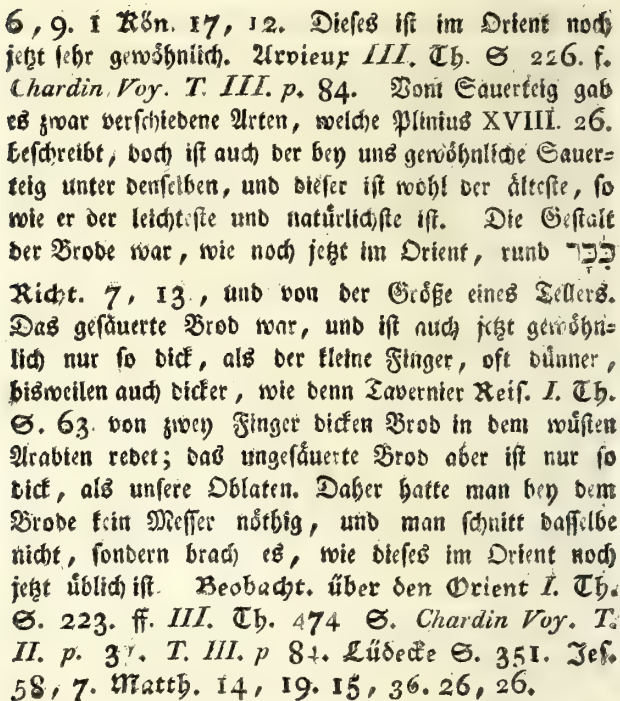 6, 9. 1 Kön. 17, 12. Dieses ist im Orient noch
jetzt sehr gewöhnlich. Arvieux III. Th. S 226. f.
Chardin Voy. T. III. p. 84. Vom Sauerteig gab
es zwar verschiedene Arten, welche Plinius XVIII. 26.
beschreibt, doch ist auch der bey uns gewöhnliche Sauer=
teig unter denselben, und dieser ist wohl der älteste, so
wie er der leichteste und natürlichste ist. Die Gestalt
der Brode war, wie noch jetzt im Orient, rund כִּכָּר
Richt. 7, 13., und von der Größe eines Tellers.
Das gesäuerte Brod war, und ist auch jetzt gewöhn=
lich nur so dick, als der kleine Finger, oft dünner,
bisweilen auch dicker, wie denn Tavernier Reis. I. Th.
S. 63. von zwey Finger dicken Brod in dem wüsten
Arabien redet; das ungesäuerte Brod aber ist nur so
dick, als unsere Oblaten. Daher hatte man bey dem
Brode kein Messer nöthig, und man schnitt dasselbe
nicht, sondern brach es, wie dieses im Orient noch
jetzt üblich ist. Beobacht. über den Orient I. Th.
S. 223. ff. III. Th. 474 S. Chardin Voy. T.
II. p. T. III. p 84. Lüdecke S. 351. Jes.
58, 7. Matth. 14, 19. 15, 36. 26, 26.